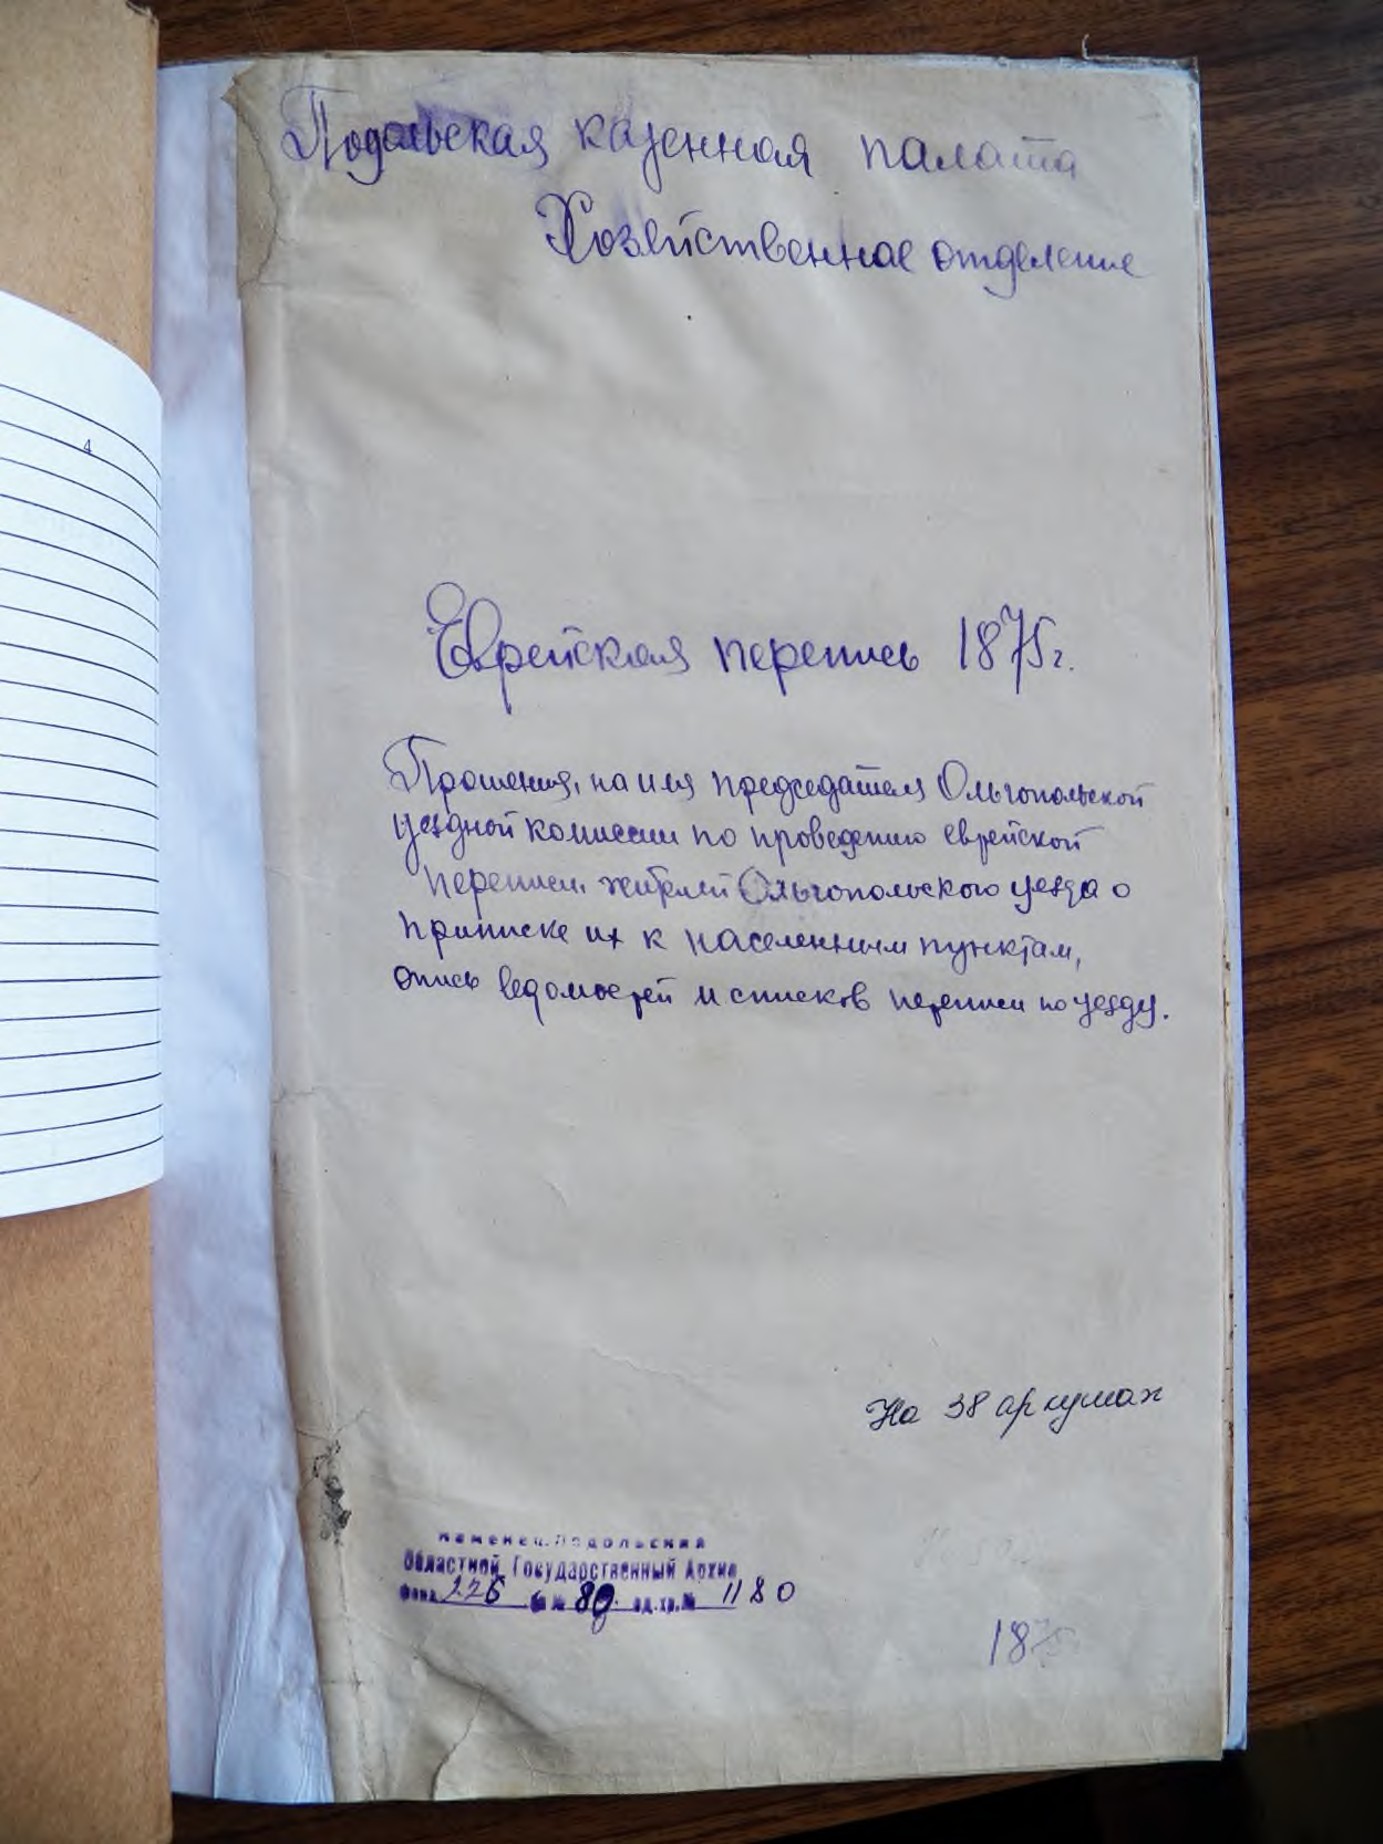 4
Подольская казенная палата
Хозяйственное отделение
Еврейская перепись 1875 г.
Прошения, на имя председателя Ольгопольской
уездной комиссии по проведению еврейской
переписи, жителей Ольгопольского уезда о
приписке их к населенным пунктам,
опись ведомостей и списков переписи по уезду.
На 38 аркушах
Каменец-Подольский
Областной Государственный Архив
Фонд 226 оп № 80. ед.хр.№ 1180
1875